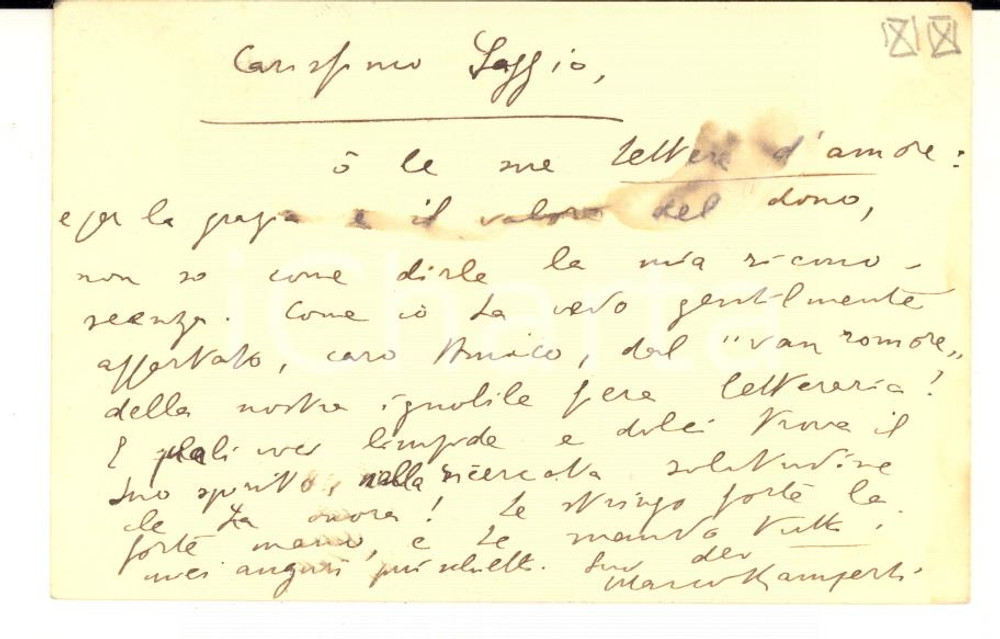 Carissimo Saggio,
ò le sue lettere d'amore:
e per la grazia e il valore del dono,
non so come dirle la mia ricono-
scenza. Come io La vedo gentilmente
appartato, caro Amico, dal "van romore„
della nostra ignobile fiera letteraria!
E quali voci limpide e dolci trova il
Suo spirito, nella ricercata solitudine
che La onora! Le stringo forte la
forte mano, e Le mando tutti i
miei auguri più schietti. Suo dev
Marco Ramperti
iCharta